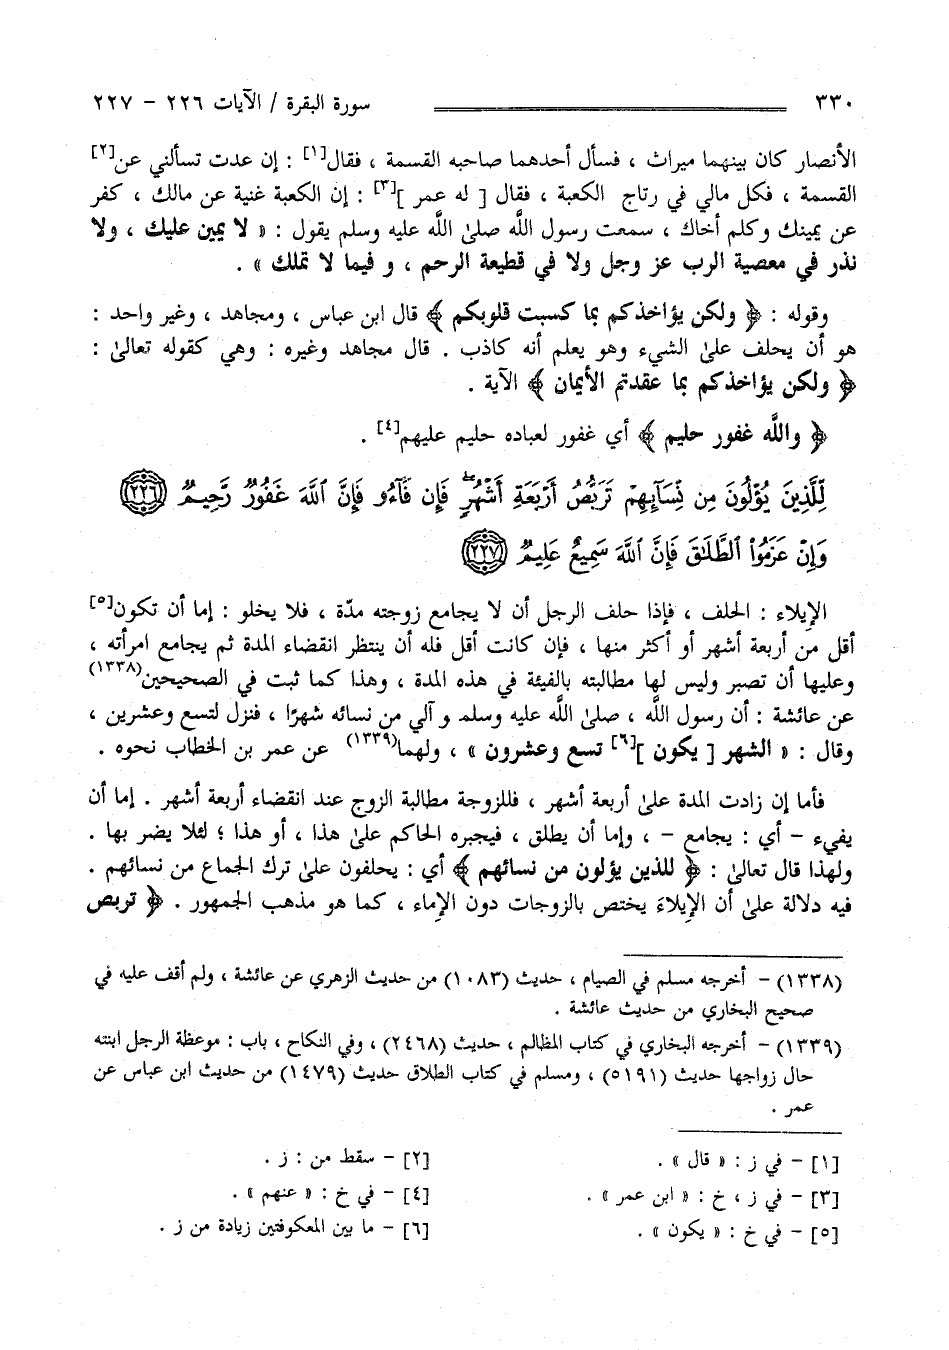 ٣٣٠ سورة البقرة / الآيات ٢٢٦ - ٢٢٧
الأنصار كان بينهما ميراث ، فسأل أحدهما صاحبه القسمة ، فقال[١] : إن عدت تسألني عن[٢]
القسمة ، فكل مالي في رتاج الكعبة ، فقال [ له عمر ][٣] : إن الكعبة غنية عن مالك ، كفر
عن يمينك وكلم أخاك ، سمعت رسول اللَّه صلىٰ اللَّه عليه وسلم يقول : « لا يمين عليك ، ولا
نذر في معصية الرب عز وجل ولا في قطيعة الرحم ، و فيما لا تملك » .
وقوله : ﴿ ولكن يؤاخذكم بما كسبت قلوبكم ﴾ قال ابن عباس ، ومجاهد ، وغير واحد :
هو أن يحلف علىٰ الشيء وهو يعلم أنه كاذب . قال مجاهد وغيره : وهي كقوله تعالىٰ :
﴿ ولكن يؤاخذكم بما عقدتم الأيمان ﴾ الآية .
﴿ واللَّه غفور حليم ﴾ أي غفور لعباده حليم عليهم[٤] .
لِّلَّذِينَ يُؤْلُونَ مِن نِّسَآئِهِمْ تَرَبُّصُ أَرْبَعَةِ أَشْهُرٍۖ فَإِن فَآءُو فَإِنَّ ٱللَّهَ غَفُورٌ رَّحِيمٌ ﴿٢٢٦﴾
وَإِنْ عَزَمُوا۟ ٱلطَّلَٰقَ فَإِنَّ ٱللَّهَ سَمِيعٌ عَلِيمٌ ﴿٢٢٧﴾
الإيلاء : الحلف ، فإذا حلف الرجل أن لا يجامع زوجته مدّة ، فلا يخلو : إما أن تكون[٥]
أقل من أربعة أشهر أو أكثر منها ، فإن كانت أقل فله أن ينتظر انقضاء المدة ثم يجامع امرأته ،
وعليها أن تصبر وليس لها مطالبته بالفيئة في هذه المدة ، وهذا كما ثبت في الصحيحين(١٣٣٨)
عن عائشة : أن رسول اللَّه ، صلىٰ اللَّه عليه وسلم و آلي من نسائه شهرًا ، فنزل لتسع وعشرين ،
وقال : « الشهر [ يكون ][٦] تسع وعشرون » ، ولهما(١٣٣٩) عن عمر بن الخطاب نحوه .
فأما إن زادت المدة علىٰ أربعة أشهر ، فللزوجة مطالبة الزوج عند انقضاء أربعة أشهر . إما أن
يفيء - أي : يجامع - ، وإما أن يطلق ، فيجبره الحاكم علىٰ هذا ، أو هذا ؛ لئلا يضر بها .
ولهذا قال تعالىٰ : ﴿ للذين يؤلون من نسائهم ﴾ أي : يحلفون علىٰ ترك الجماع من نسائهم .
فيه دلالة علىٰ أن الإيلاءَ يختص بالزوجات دون الإماء ، كما هو مذهب الجمهور . ﴿ تربص
(١٣٣٨) - أخرجه مسلم في الصيام ، حديث (١٠٨٣) من حديث الزهري عن عائشة ، ولم أقف عليه في
صحيح البخاري من حديث عائشة .
(١٣٣٩) - أخرجه البخاري في كتاب المظالم ، حديث (٢٤٦٨) ، وفي النكاح ، باب : موعظة الرجل ابنته
حال زواجها حديث (٥١٩١) ، ومسلم في كتاب الطلاق حديث (١٤٧٩) من حديث ابن عباس عن
عمر .
[١] - في ز : « قال » . [٢] - سقط من : ز .
[٣] - في ز ، خ : « ابن عمر » . [٤] - في خ : « عنهم » .
[٥] - في خ : « يكون » . [٦] - ما بين المعكوفتين زيادة من ز .